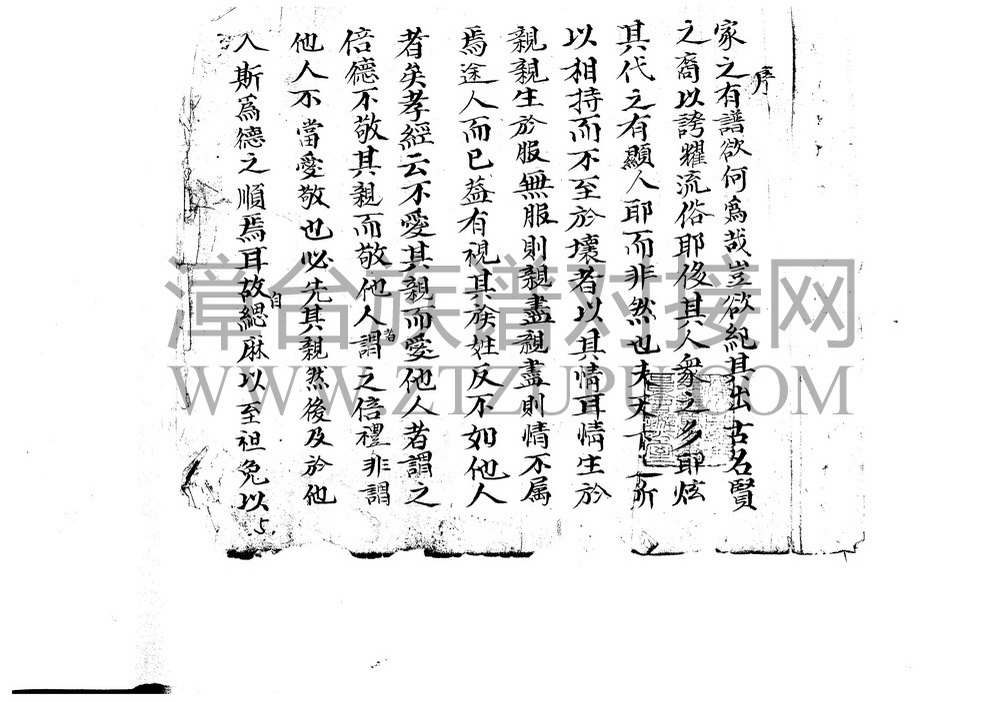 序
家之有譜欲何為哉豈欲紀其出古名賢
之裔以誇耀流俗耶侈其人衆之多耶炫
其代之有顯人耶而非然也夫天下之所
以相持而不至於壞者以其情耳情生於
親親生於服無服則親盡親盡則情不属
焉途人而已葢有視其族姓反不如他人
者矣孝經云不愛其親而愛他人者謂之
倍德不敬其親而敬他人者謂之倍禮非謂
他人不當愛敬也必先其親然後及於他
人斯為德之順焉耳故自緦麻以至袒免以
5.
漳台族谱对接网
WWW.ZTZUPU.COM